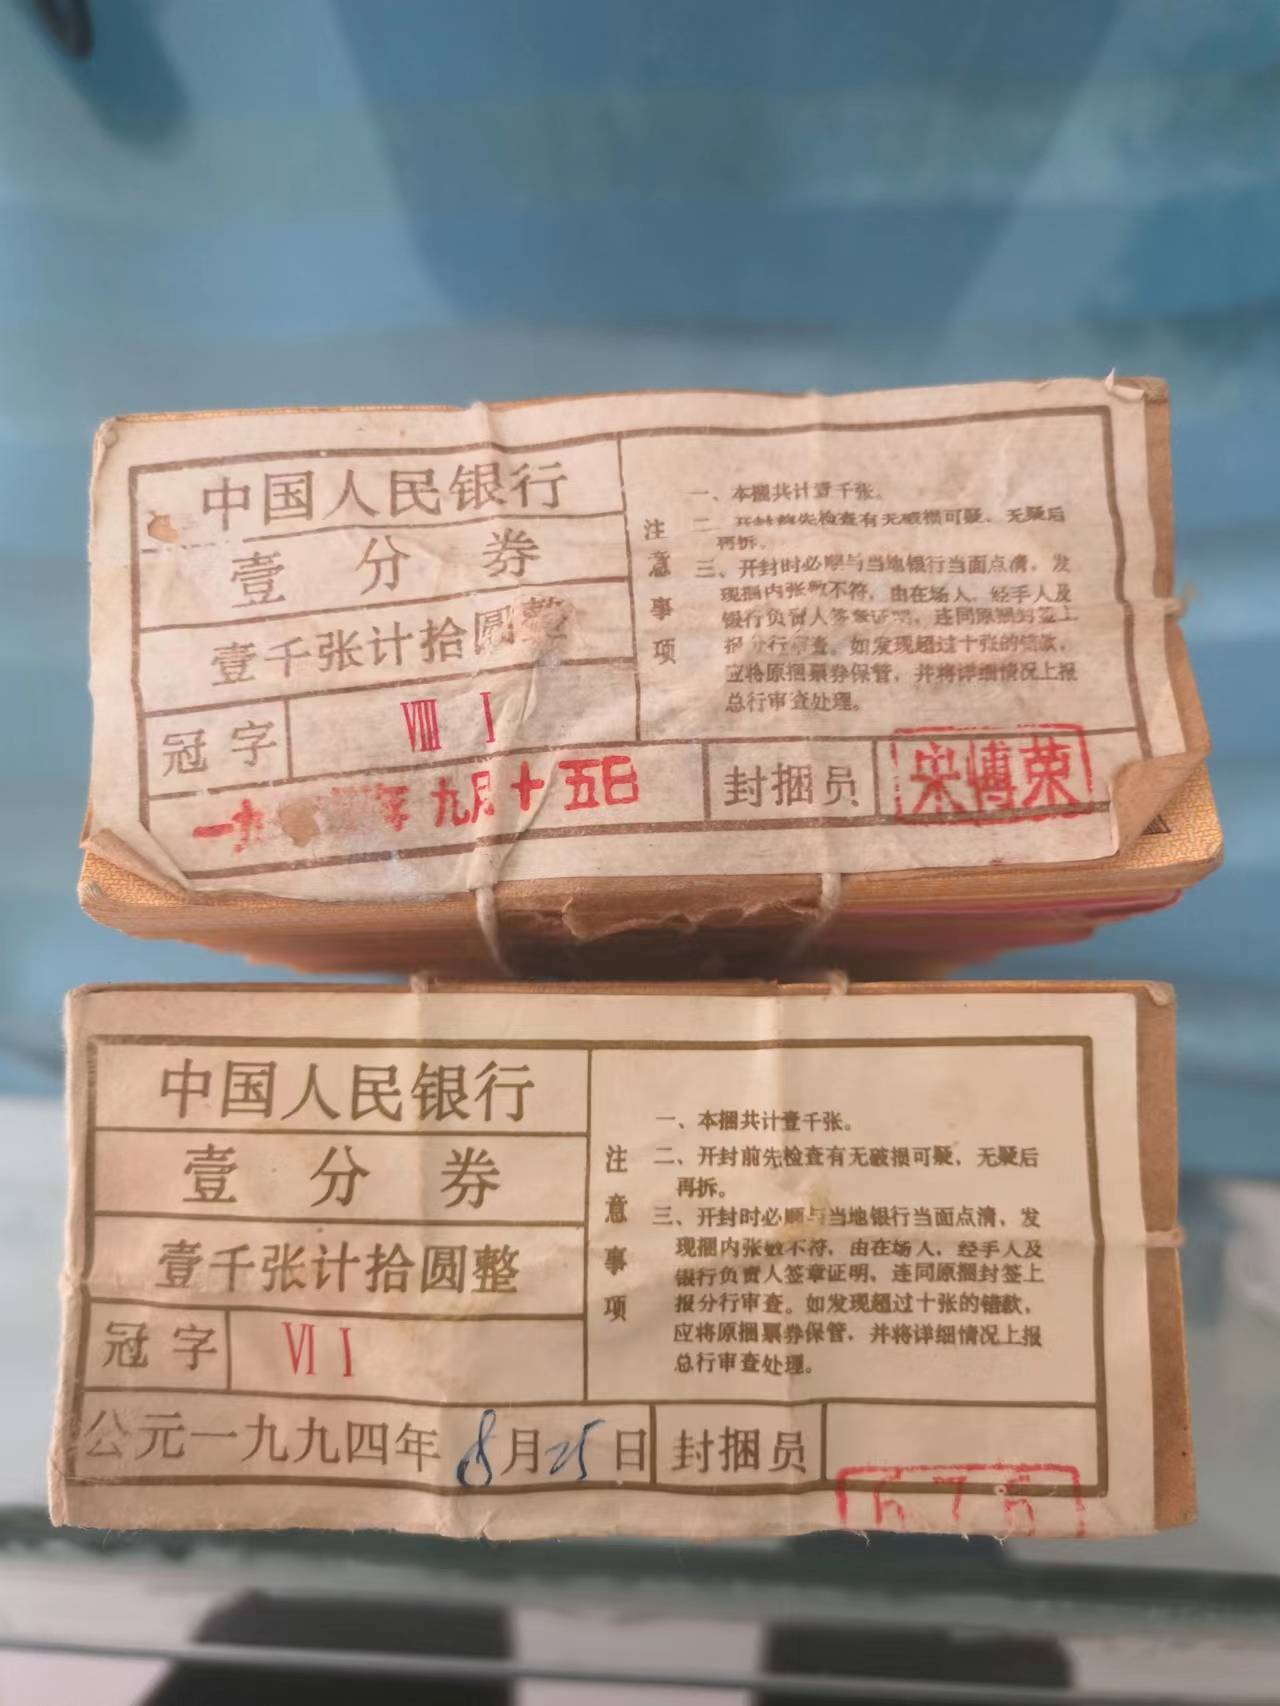 中国人民银行
壹分券
壹千张计拾圆整
冠字 Ⅷ Ⅰ
年九月十五日
注意事项
一、本捆共计壹千张。
二、开封前先检查有无破损可疑，无疑后
再拆。
三、开封时必顺与当地银行当面点清，发
现捆内张数不符，由在场人，经手人及
银行负责人签章证明，连同原捆封签上
报分行审查。如发现超过十张的错款，
应将原捆票券保管，并将详细情况上报
总行审查处理。
封捆员 宋博荣
中国人民银行
壹分券
壹千张计拾圆整
冠字 Ⅵ Ⅰ
公元一九九四年8月25日
注意事项
一、本捆共计壹千张。
二、开封前先检查有无破损可疑，无疑后
再拆。
三、开封时必顺与当地银行当面点清，发
现捆内张数不符，由在场人，经手人及
银行负责人签章证明，连同原捆封签上
报分行审查。如发现超过十张的错款，
应将原捆票券保管，并将详细情况上报
总行审查处理。
封捆员